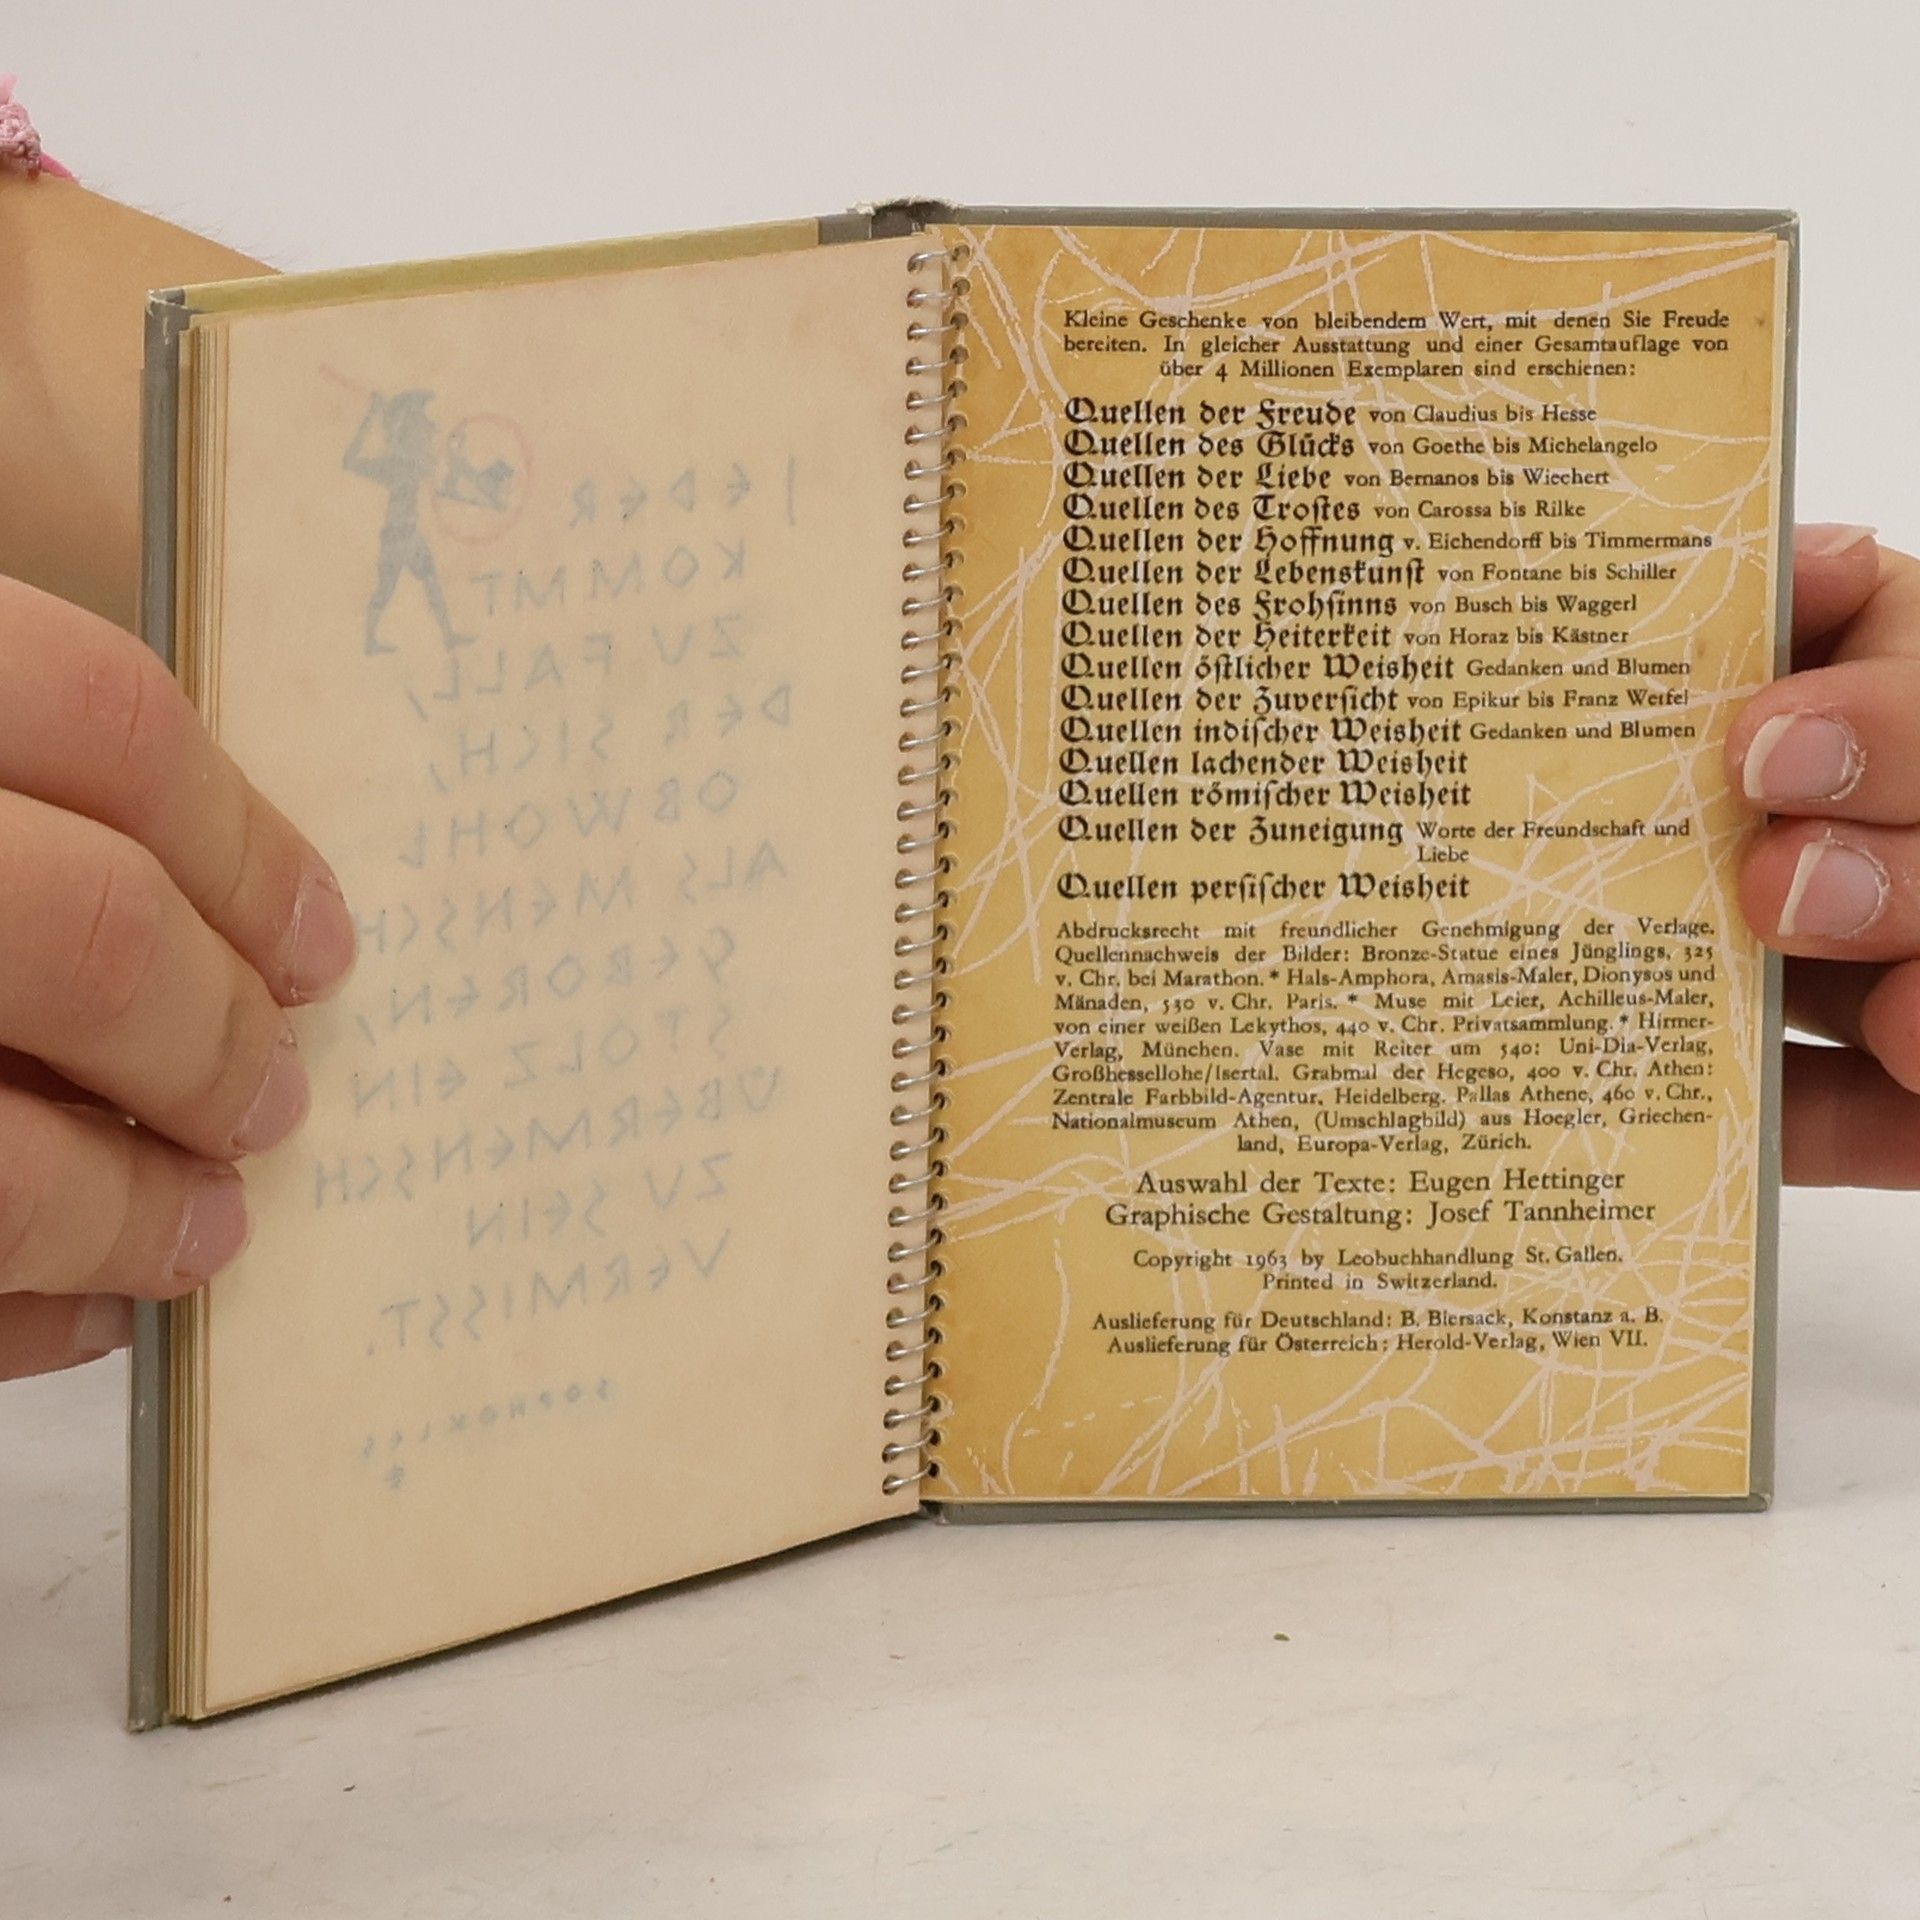 JEDER
KOMMT
ZU FALL,
DER SICH,
OBWOHL
ALS MENSCH
GEBOREN,
STOLZ EIN
ÜBERMENSCH
ZU SEIN
VERMISST.
SOPHOKLES
Kleine Geschenke von bleibendem Wert, mit denen Sie Freude
bereiten. In gleicher Ausstattung und einer Gesamtauflage von
über 4 Millionen Exemplaren sind erschienen:
Quellen der Freude von Claudius bis Hesse
Quellen des Glücks von Goethe bis Michelangelo
Quellen der Liebe von Bernanos bis Wiechert
Quellen des Trostes von Carossa bis Rilke
Quellen der Hoffnung v. Eichendorff bis Timmermans
Quellen der Lebenskunst von Fontane bis Schiller
Quellen des Frohsinns von Busch bis Waggerl
Quellen der Heiterkeit von Horaz bis Kästner
Quellen östlicher Weisheit Gedanken und Blumen
Quellen der Zuversicht von Epikur bis Franz Werfel
Quellen indischer Weisheit Gedanken und Blumen
Quellen lachender Weisheit
Quellen römischer Weisheit
Quellen der Zuneigung Worte der Freundschaft und
Liebe
Quellen persischer Weisheit
Abdrucksrecht mit freundlicher Genehmigung der Verlage.
Quellennachweis der Bilder: Bronze-Statue eines Jünglings, 325
v. Chr. bei Marathon. * Hals-Amphora, Amasis-Maler, Dionysos und
Mänaden, 530 v. Chr. Paris. * Muse mit Leier, Achilleus-Maler,
von einer weißen Lekythos, 440 v. Chr. Privatsammlung. * Hirmer-
Verlag, München. Vase mit Reiter um 540: Uni-Dia-Verlag,
Großhessellohe/Isertal. Grabmal der Hegeso, 400 v. Chr. Athen:
Zentrale Farbbild-Agentur, Heidelberg. Pallas Athene, 460 v. Chr.,
Nationalmuseum Athen, (Umschlagbild) aus Hoegler, Griechen-
land, Europa-Verlag, Zürich.
Auswahl der Texte: Eugen Hettinger
Graphische Gestaltung: Josef Tannheimer
Copyright 1963 by Leobuchhandlung St. Gallen.
Printed in Switzerland.
Auslieferung für Deutschland: B. Biersack, Konstanz a. B.
Auslieferung für Österreich: Herold-Verlag, Wien VII.